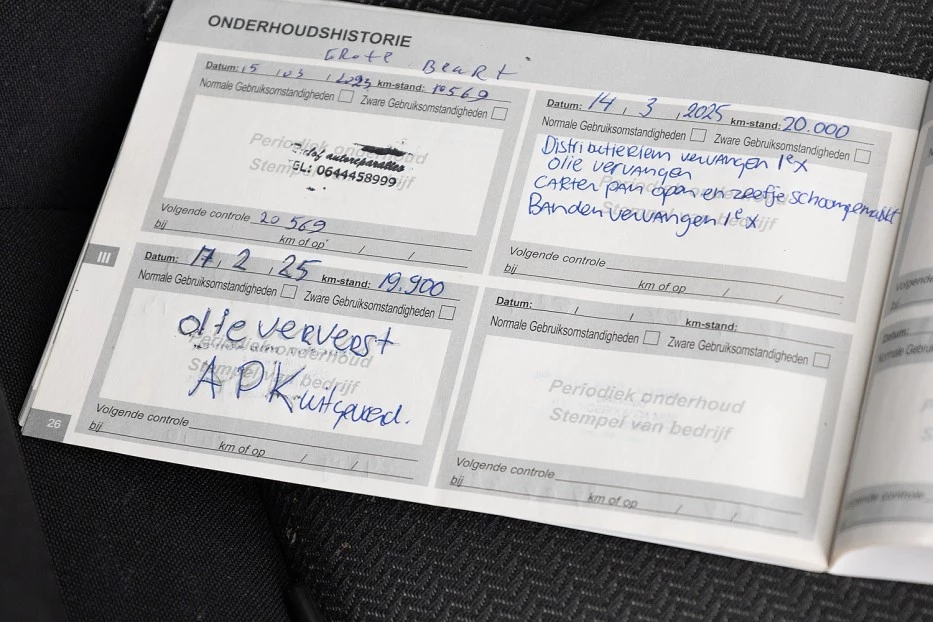 ONDERHOUDSHISTORIE
GRote BeuRt
Datum: 15 / 03 / 2023 km-stand: 18569
Normale Gebruiksomstandigheden Zware Gebruiksomstandigheden
Periodiek onderhoud
autoreparaties
Stempel van bedrijf
GL: 0644458999
Volgende controle 20 569
bij km of op / /
Datum: 17 , 2 , 25 km-stand: 19.900
Normale Gebruiksomstandigheden Zware Gebruiksomstandigheden
olie ververst
Periodiek onderhoud
Stempel van bedrijf
APK uitgevoerd.
Volgende controle
bij km of op / /
Datum: 14 , 3 , 2025 km-stand: 20.000
Normale Gebruiksomstandigheden Zware Gebruiksomstandigheden
Distributieriem vervangen 1e x
olie vervangen
carter pan open en zeefje schoongemaakt
Banden vervangen 1e x
Volgende controle
bij km of op / /
Datum: / / km-stand:
Normale Gebruiksomstandigheden Zware Gebruiksomstandigheden
Periodiek onderhoud
Stempel van bedrijf
Volgende controle
bij km of op / /
III
26